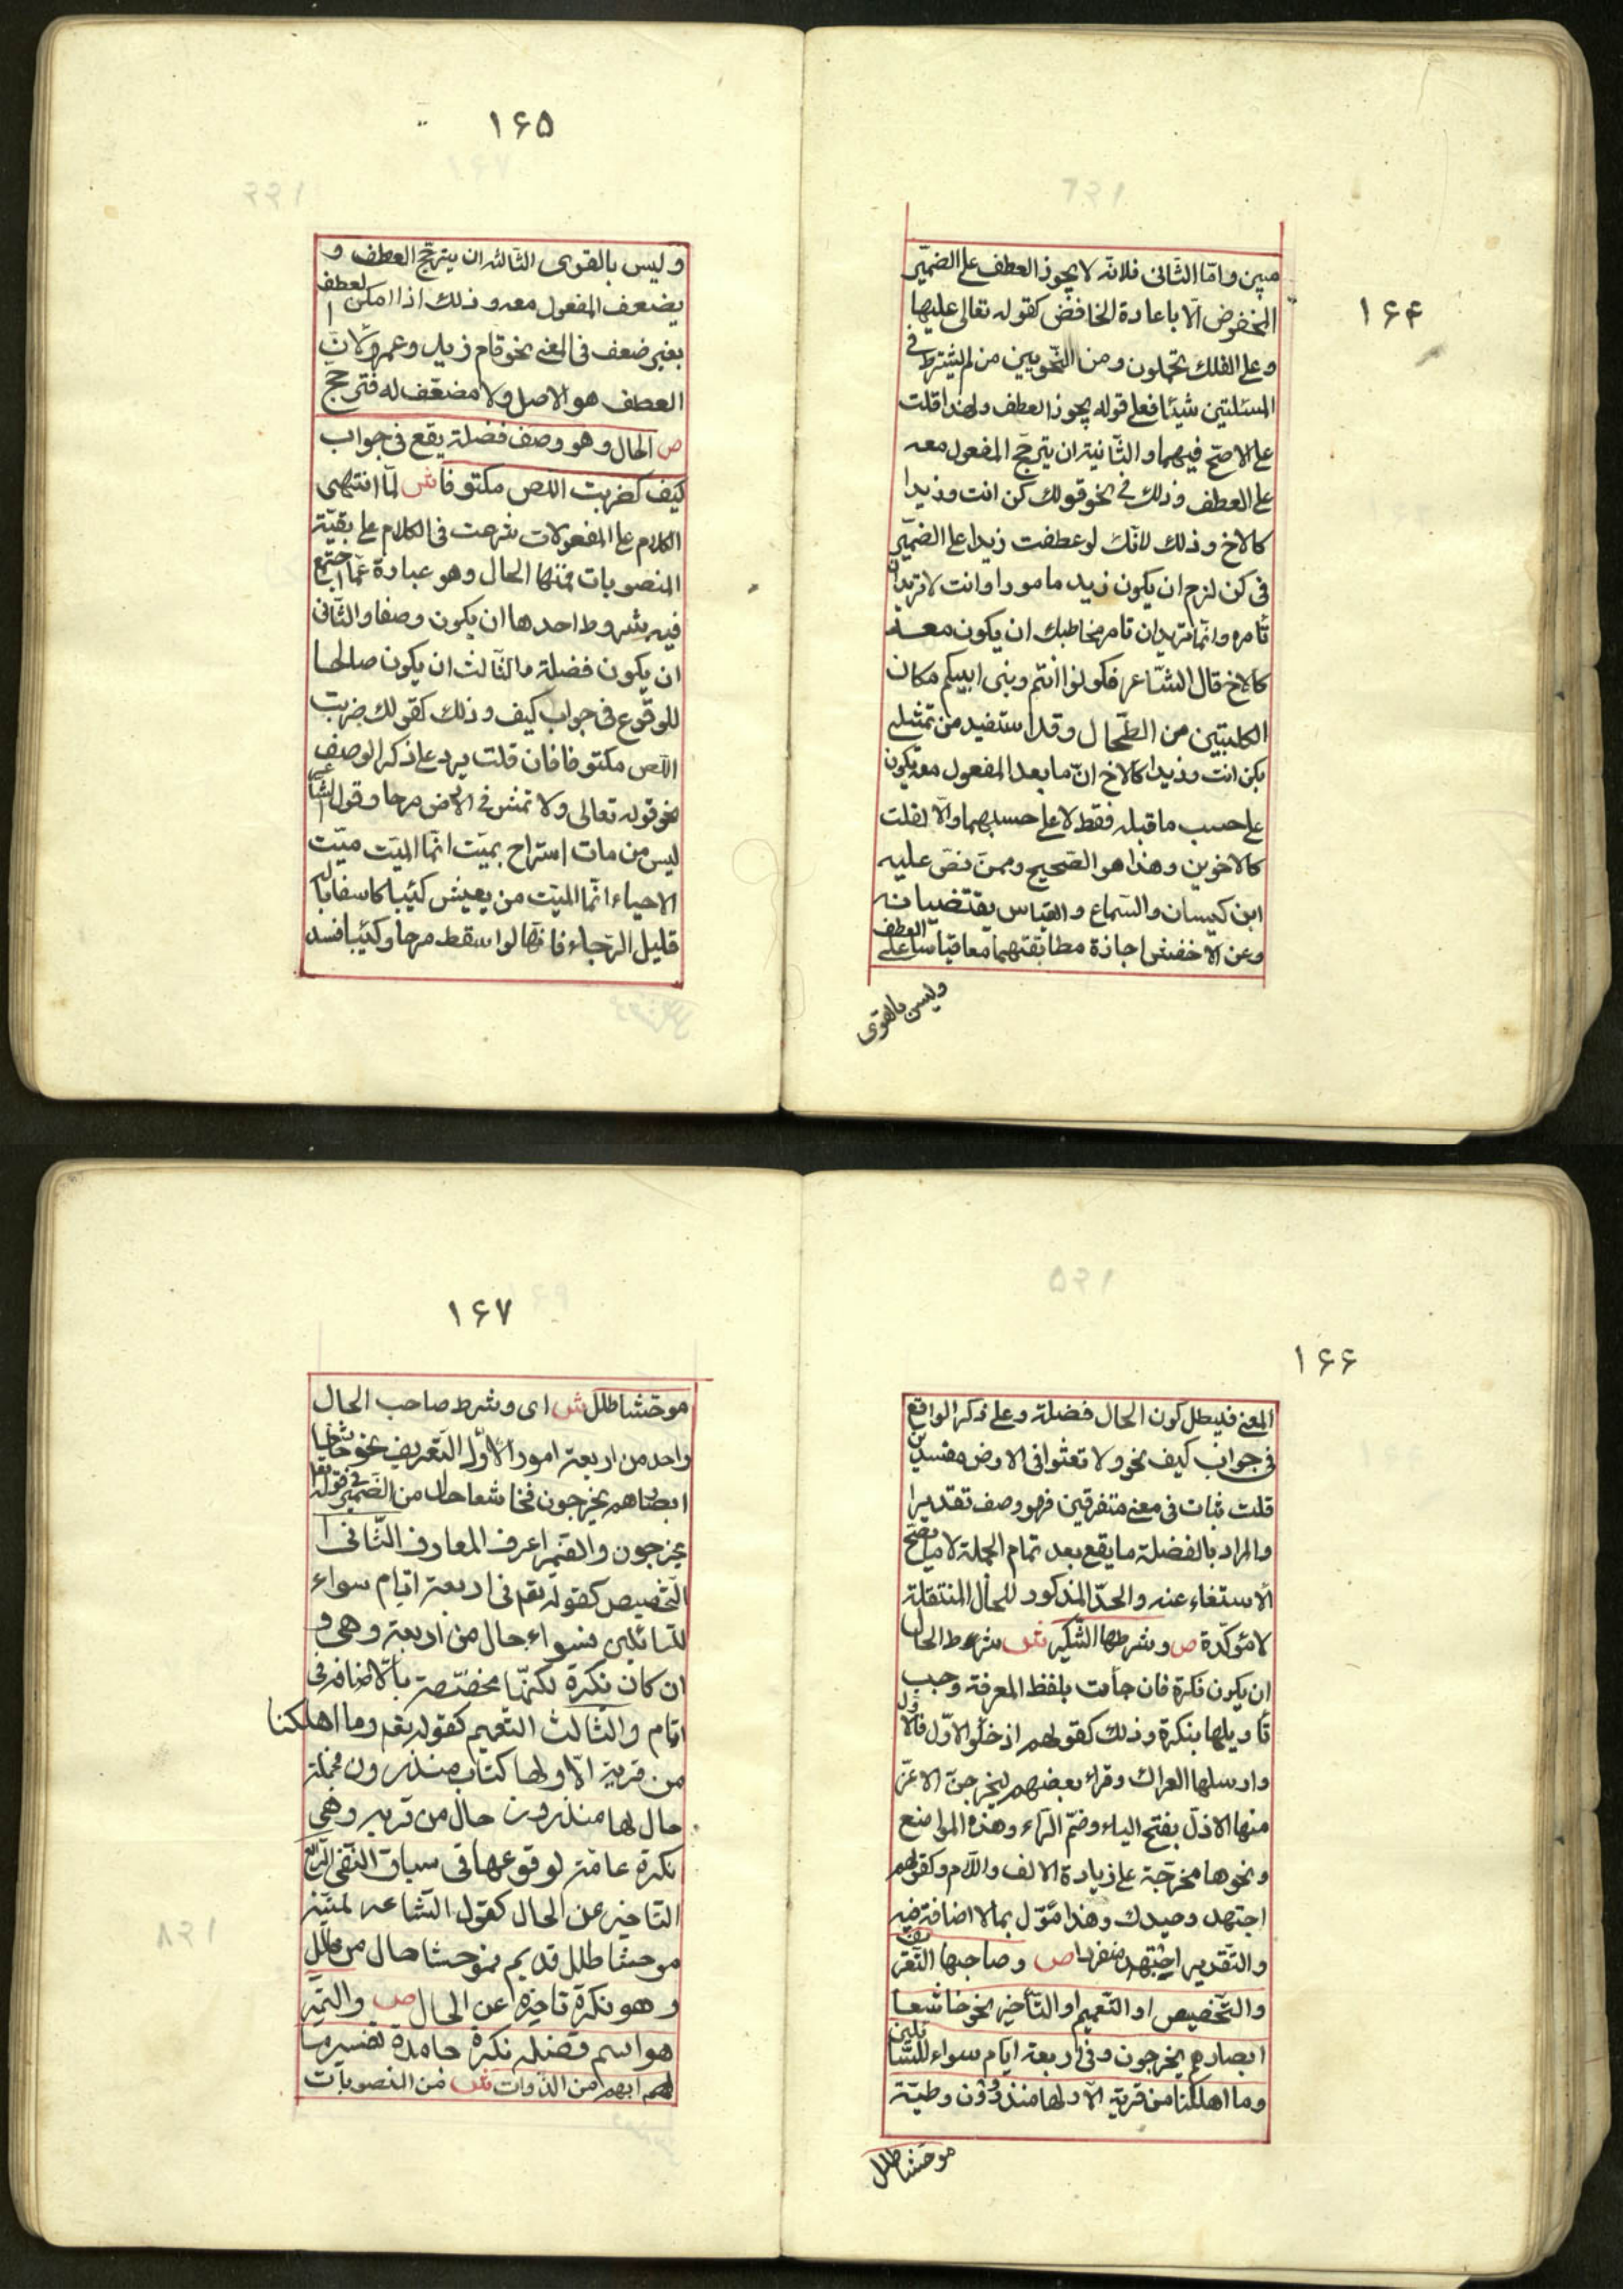 ۱۶۴
مبين وامّا الثّانى فلانّه لا يجوز العطف على الضّمير
المخفوض الّا باعادة الخافض كقوله تعالى عليها
وعلى الفلك تحملون ومن النّحويين من لم يشترط فى
المسئلتين شيئا فعلى قوله يجوز العطف ولهذا قلت
على الاصحّ فيهما والثّانية ان يترجّح المفعول معه
على العطف وذلك فى نحو قولك كن انت وزيدا
كالاخ وذلك لانّك لو عطفت زيدا على الضّمير
فى كن لزم ان يكون زيد مامورا وانت لا تريد ان
تامره وانّما تريد ان تامر مخاطبك ان يكون معه
كالاخ قال الشّاعر فكونوا انتم وبنى ابيكم مكان
الكليتين من الطّحال وقد استفيد من تمثيلى
بكن انت وزيدا كالاخ انّ ما بعد المفعول معه يكون
على حسب ما قبله فقط لا على حسبهما والّا لقلت
كالاخوين وهذا هو الصّحيح وممن نصّ عليه
ابن كيسان والسّماع والقياس يقتضيانه
وعن الاخفش اجازة مطابقتهما معا قياسا على العطف
وليس بالقوى
۱۶۵
وليس بالقوى الثّالثه ان يترجّح العطف و
يضعف المفعول معه وذلك اذا امكن العطف
بغير ضعف فى المعنى نحو قام زيد وعمرو لانّ
العطف هو الاصل ولا مضعّف له فترجّح
ص الحال وهو وصف فضلة يقع فى جواب
كيف كضربت اللّص مكتوفا ش لمّا انتهى
الكلام على المفعولات شرعت فى الكلام على بقيّة
المنصوبات فمنها الحال وهو عبارة عمّا اجتمع
فيه شروط احدها ان يكون وصفا والثّانى
ان يكون فضلة والثّالث ان يكون صالحا
للوقوع فى جواب كيف وذلك كقولك ضربت
اللّص مكتوفا فان قلت يرد على ذكر الوصف
نحو قوله تعالى ولا تمش فى الارض مرحا وقول الشّاعر
ليس من مات استراح بميت انّما الميّت ميّت
الاحياء انّما الميّت من يعيش كئيبا كاسفا باله
قليل الرّجاء فانّها لو اسقط مرحا وكئيبا فسد
۱۶۶
المعنى فيبطل كون الحال فضلة وعلى ذكر الواقع
فى جواب كيف نحو ولا تعثوا فى الارض مفسدين
قلت ثبات فى معنى متفرقين فهو وصف تقديرا
والمراد بالفضلة ما يقع بعد تمام الجملة لا ما يصحّ
الاستغناء عنه والحدّ المذكور للحال المنتقلة
لا مؤكّدة ص وشرطها التّنكير ش شرط الحال
ان يكون نكرة فان جاءت بلفظ المعرفة وجب
تأويلها بنكرة وذلك كقولهم ادخلوا الاوّل فالاول
وارسلها العراك وقراء بعضهم ليخرجنّ الاعزّ
منها الاذلّ بفتح الياء وضمّ الرّاء وهذه المواضع
ونحوها مخرّجة على زيادة الالف واللّام وكقولهم
اجتهد وحيدك وهذا مؤوّل بما لا اضافة فيه
والتّقدير اجتهد منفردا ص وصاحبها التّعريف
والتّخصيص او التّعميم او التّأخير نحو خاشعا
ابصارهم يخرجون وفى اربعة ايّام سواء للسّائلين
وما اهلكنا من قرية الّا ولها منذرون و لميّة
موحشا طلل
۱۶۷
موحشا طلل ش اى وشرط صاحب الحال
واحد من اربعة امور الاوّل التّعريف نحو خاشعا
ابصارهم يخرجون فخاشعا حال من الضّمير فى قوله تعالى
يخرجون والضّمير اعرف المعارف الثّانى
التّخصيص كقوله تعم فى اربعة ايّام سواء
للسّائلين فسواء حال من اربعة وهى و
ان كان نكرة لكنّها مخصّصة بالاضافة فى
ايّام والثّالث التّعميم كقوله تعم وما اهلكنا
من قرية الّا ولها كتاب منذرون فجملة
حال لها منذرون حال من قرية وهى
نكرة عامّة لوقوعها فى سياق النّفى الرّابع
التّاخير عن الحال كقول الشّاعر لميّة
موحشا طلل قديم فموحشا حال من طلل
وهو نكرة تاخيره عن الحال ص والتّميز
هو اسم فضله نكرة جامدة تفسير ما
لهم ابهم من الذّوات ش من المنصوبات